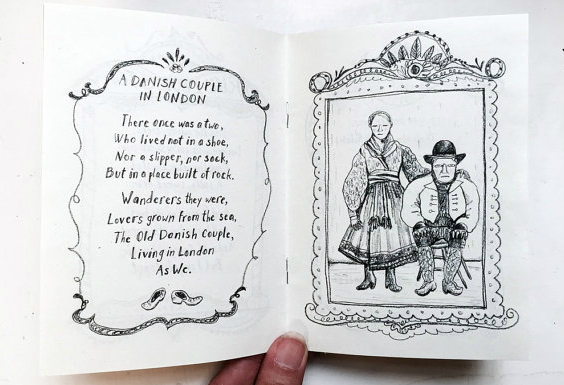 A DANISH COUPLE
IN LONDON
There once was a two,
Who lived not in a shoe,
Nor a slipper, nor sock,
But in a place built of rock.
Wanderers they were,
Lovers grown from the sea,
The Old Danish Couple,
Living in London
As We.